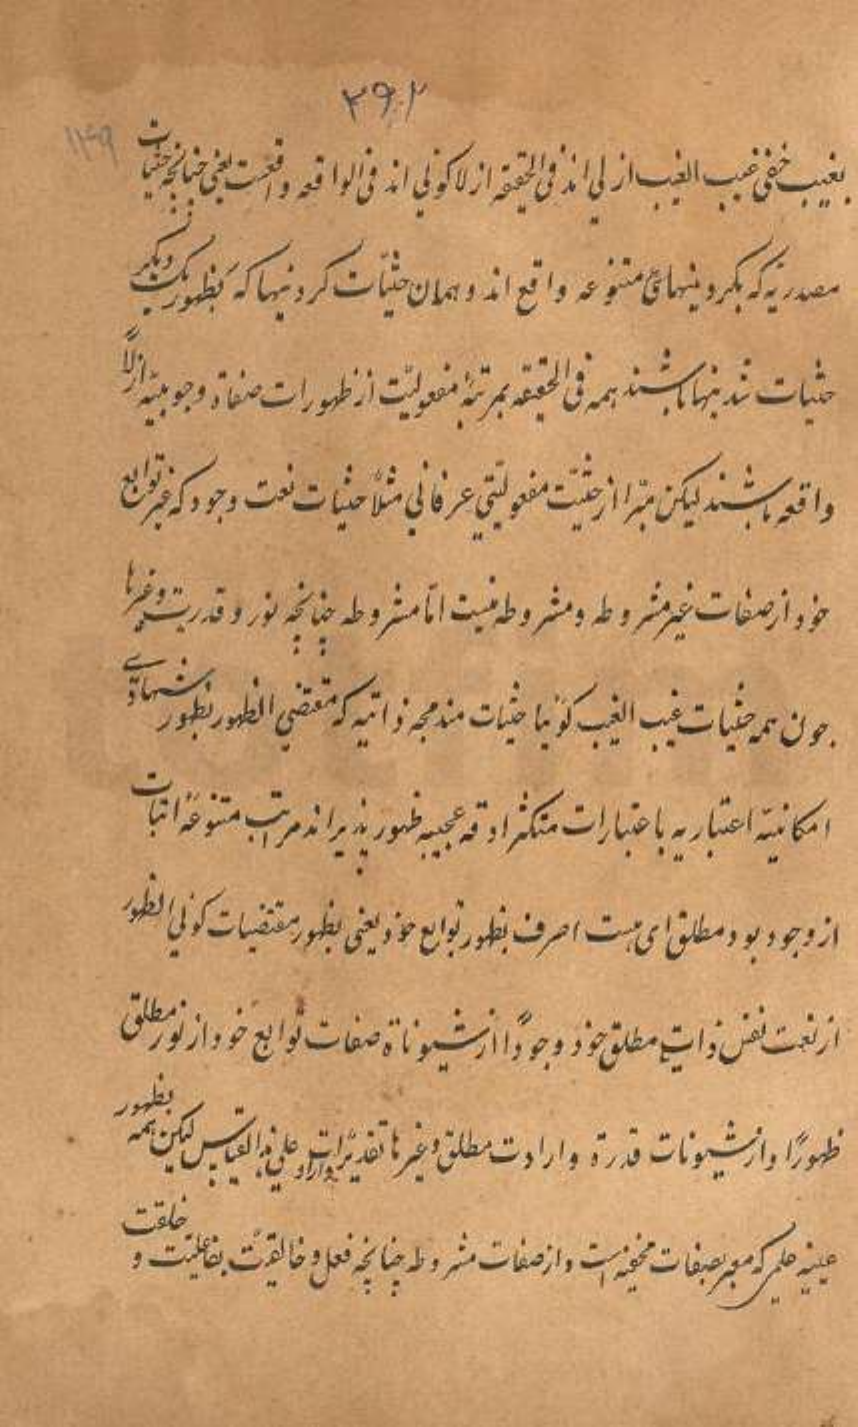 ۳۹۲
۱۴۹
بغیب خفی غیب الغیب ازلی اند فی الحقیقه از لا کونی اند فی الواقعه واقعست یعنی چنانچه حثیات
مصدریه که بکردینهائ متنوعه واقع اند و همان حثیّات کردنیها که بظهور یک دیگر
حثیات شدنیها باشند همه فی الحقیقه بمرتبهٔ مفعولیّت از ظهورات صفاة وجوبیّه ازلاً
واقعه باشند لیکن مبّرا از حثیّت مفعولیّتی عرفانی مثلاً حثیات نعت وجود که غیر توابع
خود از صفات غیر مشروطه و مشروطه نیست امّا مشروطه چنانچه نور و قدرت و غیرها
جون همه حثیات غیب الغیب کوئیا حثیات مندمجه ذاتیه که مقتضی الظهور بظهور شهادتی
امکانیّه اعتباریه باعتبارات متکثر ادقه عجیبه ظهور پذیراند مراتب متنوعه اثبات
از وجود بود مطلق ای هست اصرف بظهور توابع خود یعنی بظهور مقتضیات کونی الظهور
از نعت نفس ذات مطلق خود وجودًا از شیوناة صفات توابع خود از نور مطلق
ظهورًا و از شیونات قدرة و ارادت مطلق و غیرها تقدیرات و علی هذا القیاس لیکن همه بظهور
عینیه علمی که معبر بصفات مخفیه است و از صفات مشروطه چنانچه فعل و خالقیّت بفاعلیّت و خلقت